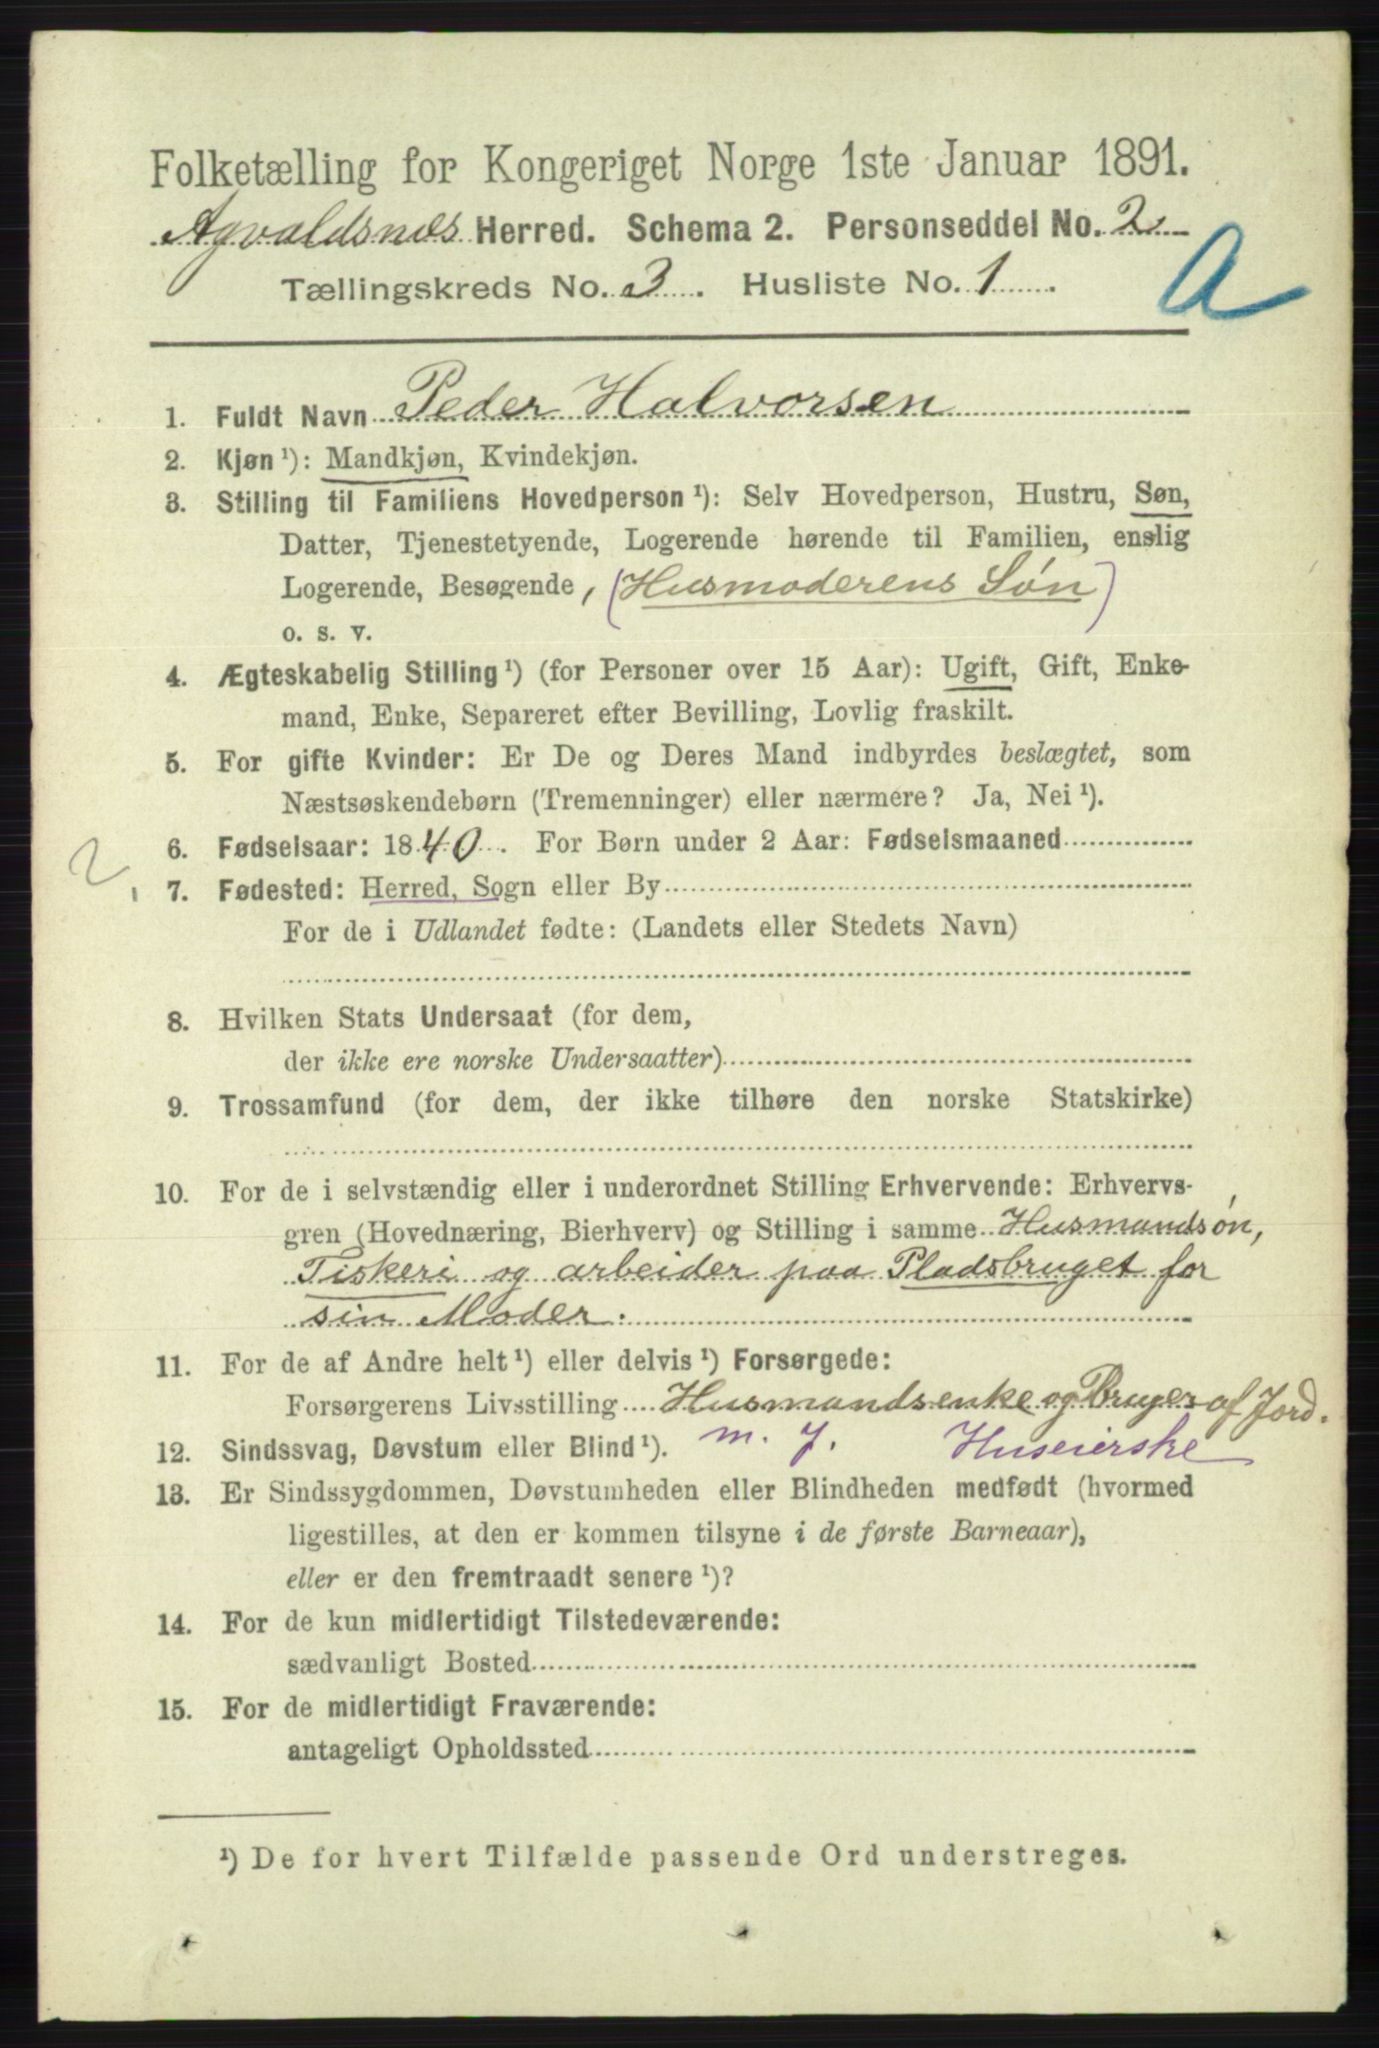 Folketælling for Kongeriget Norge 1ste Januar 1891.
Agvaldsnes Herred. Schema 2. Personseddel No. 2
Tællingskreds No. 3. Husliste No. 1.
A
1. Fuldt Navn Peder Halvorsen
2. Kjøn ¹): Mandkjøn, Kvindekjøn.
3. Stilling til Familiens Hovedperson ¹): Selv Hovedperson, Hustru, Søn,
Datter, Tjenestetyende, Logerende hørende til Familien, enslig
Logerende, Besøgende, (Husmoderens Søn)
o. s. v.
4. Ægteskabelig Stilling ¹) (for Personer over 15 Aar): Ugift, Gift, Enke-
mand, Enke, Separeret efter Bevilling, Lovlig fraskilt.
5. For gifte Kvinder: Er De og Deres Mand indbyrdes beslægtet, som
Næstsøskendebørn (Tremenninger) eller nærmere? Ja, Nei ¹).
6. Fødselsaar: 1840. For Børn under 2 Aar: Fødselsmaaned
2,
7. Fødested: Herred, Sogn eller By
For de i Udlandet fødte: (Landets eller Stedets Navn)
8. Hvilken Stats Undersaat (for dem,
der ikke ere norske Undersaatter)
9. Trossamfund (for dem, der ikke tilhøre den norske Statskirke)
10. For de i selvstændig eller i underordnet Stilling Erhvervende: Erhvervs-
gren (Hovednæring, Bierhverv) og Stilling i samme Husmandsøn,
Fiskeri og arbeider paa Pladsbruget for
sin Moder.
11. For de af Andre helt ¹) eller delvis ¹) Forsørgede:
Forsørgerens Livsstilling Husmandsenke og Bruger af Jord.
12. Sindssvag, Døvstum eller Blind ¹). m. J. Huseierske
13. Er Sindssygdommen, Døvstumheden eller Blindheden medfødt (hvormed
ligestilles, at den er kommen tilsyne i de første Barneaar),
eller er den fremtraadt senere ¹)?
14. For de kun midlertidigt Tilstedeværende:
sædvanligt Bosted
15. For de midlertidigt Fraværende:
antageligt Opholdssted
¹) De for hvert Tilfælde passende Ord understreges.